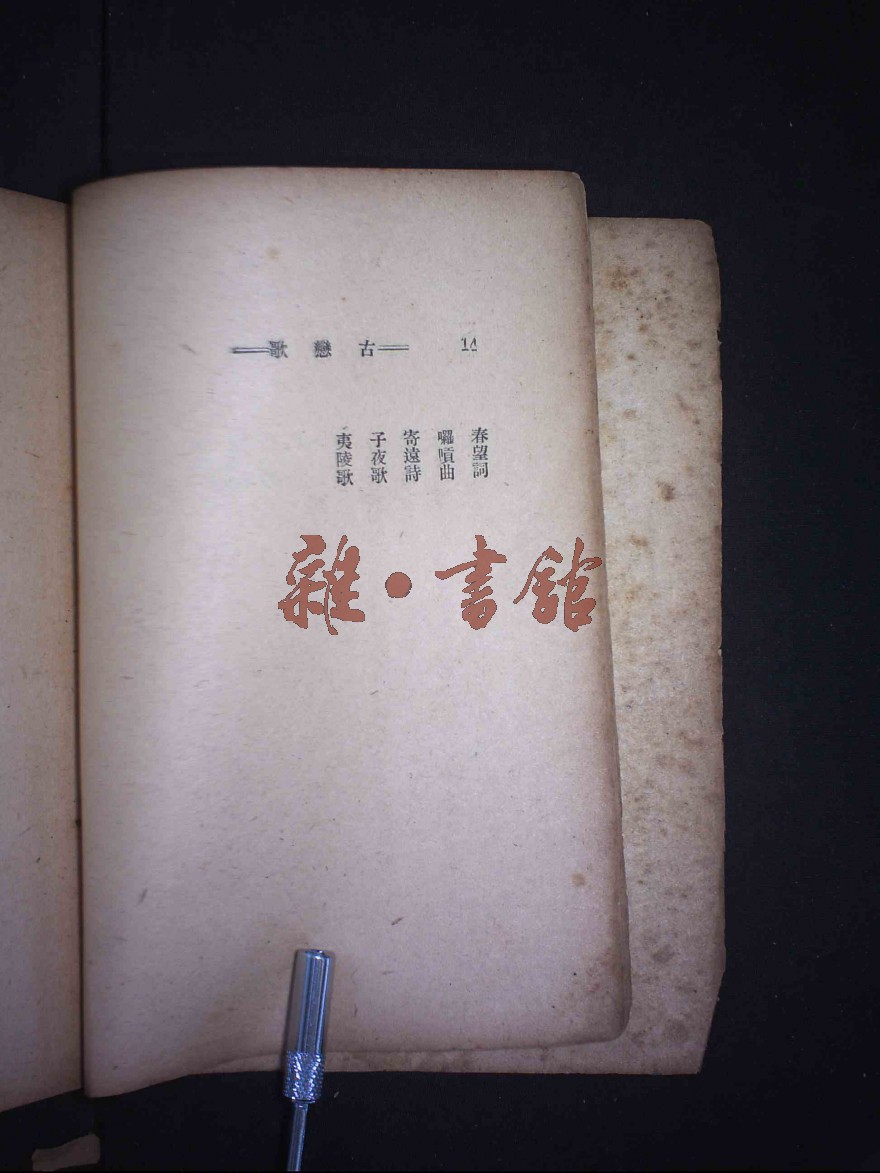 古戀歌
春望詞
囉嗊曲
寄遠詩
子夜歌
夷陵歌
雜·書館